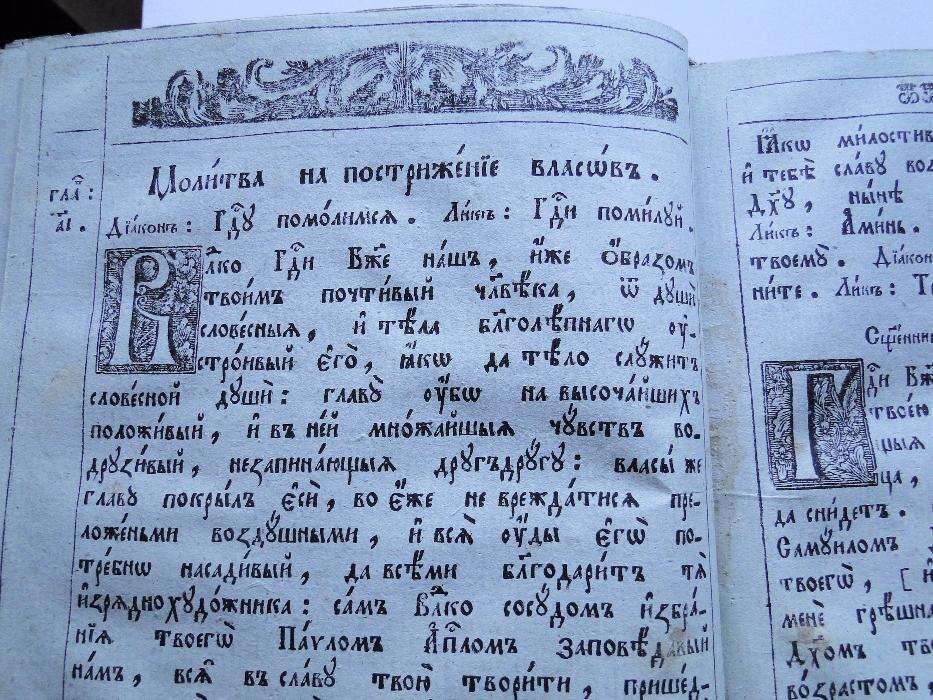 Моли́тва на пострижéнїе власѡ́въ.
гла҃:
а҃і.
Дїа́конъ: Гд҇ꙋ помо́лимсѧ. Ли́къ: Гд҇и поми́лꙋй.
Влⷣко Гд҇и Бж҃е на́шъ, и҆́же ѡ҆́бразомъ
твои́мъ почти́вый чл҃вѣ́ка, ѿ дꙋшѝ
слове́сныѧ, и҆ тѣ́ла бл҃голѣ́пнагѡ ᲂу҆-
стро́ивый є҆го̀, ꙗ҆́кѡ да тѣ́ло слꙋ́житъ
слове́сной дꙋшѝ: главꙋ̀ ᲂу҆́бѡ на высоча́йшихъ
положи́вый, и҆ въ не́й мно́жайшыѧ чꙋ́вствъ во-
дрꙋзи́вый, незапина́ющыѧ дрꙋ́гъдрꙋгꙋ: власы́ же
главꙋ̀ покры́лъ є҆сѝ, во є҆́же не врежда́тисѧ пре-
ложе́ньми воздꙋ́шными, и҆ всѧ̑ ᲂу҆́ды є҆гѡ̀ по-
тре́бнѡ насади́вый, да всѣ́ми бл҃годари́тъ тѧ̀
и҆зрѧ́днохꙋдо́жника: са́мъ влⷣко сосꙋ́домъ и҆збра́-
нїѧ твоегѡ̀ Па́ѵломъ А҆пⷭ҇ломъ заповѣ́давый
на́мъ, всѧ̑ въ сла́вꙋ твою̀ твори́ти, прише́д-
Ꙗ҆́кѡ милости́въ
и҆ тебѣ̀ сла́вꙋ воз
Дх҃ꙋ, ны́нѣ
Ли́къ: А҆ми́нь.
твоемꙋ̀. Дїа́кон
ни́те. Ли́къ: Т
Сщ҃е́нни
Гд҇и Бж҃
твое́ю
цыѧ
ца,
да сни́детъ.
Самꙋи́ломъ
твоегѡ̀, [и҆
менѐ грѣ́шна
Дх҃омъ тво
во́зрастомъ,